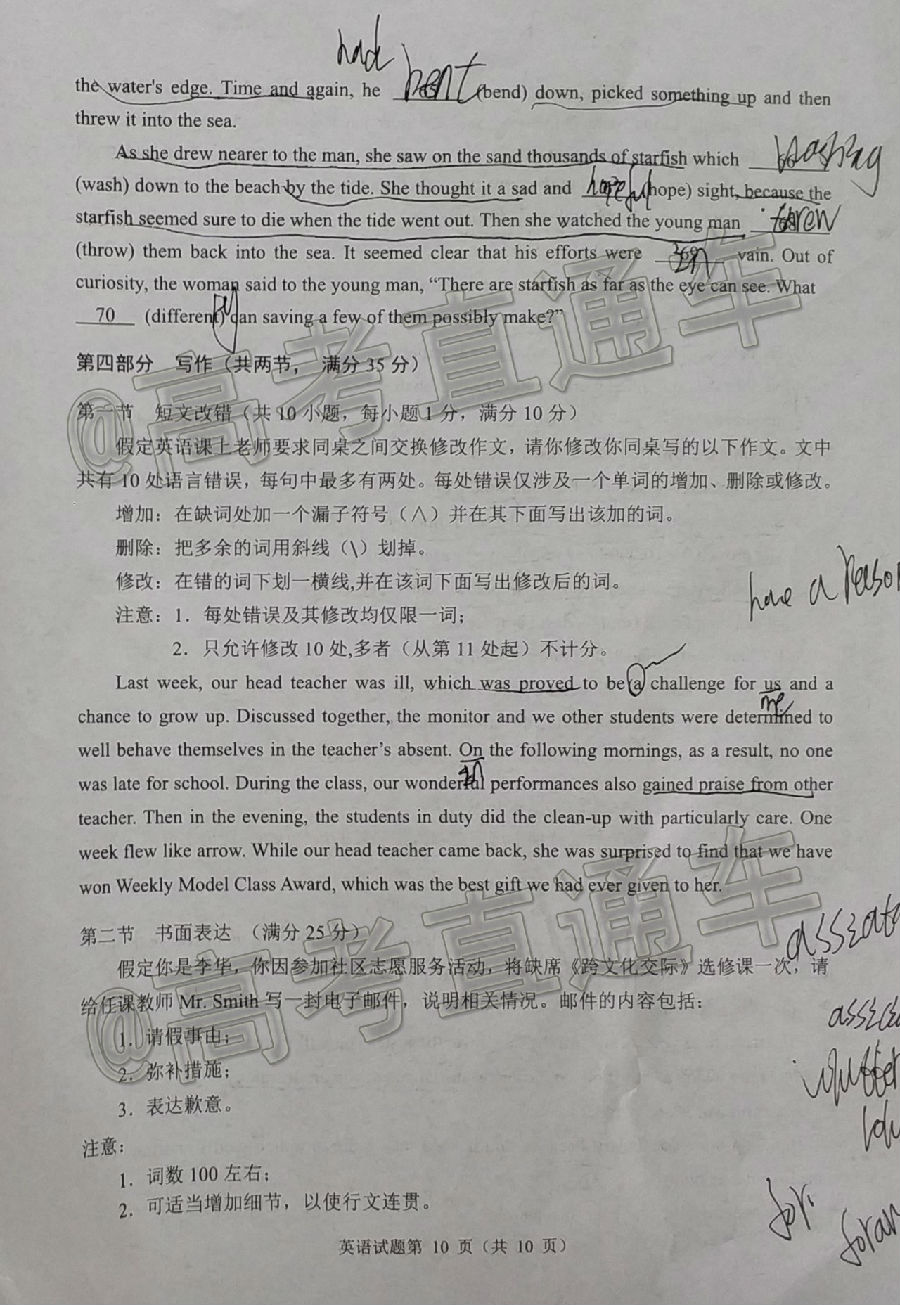 had
the water's edge. Time and again, he bent (bend) down, picked something up and then
threw it into the sea.
As she drew nearer to the man, she saw on the sand thousands of starfish which washing
(wash) down to the beach by the tide. She thought it a sad and hopeful (hope) sight, because the
starfish seemed sure to die when the tide went out. Then she watched the young man threw
(throw) them back into the sea. It seemed clear that his efforts were 69 in vain. Out of
curiosity, the woman said to the young man, “There are starfish as far as the eye can see. What
70 (different) can saving a few of them possibly make?”
第四部分 写作（共两节， 满分 35 分）
第一节 短文改错（共 10 小题，每小题 1 分，满分 10 分）
假定英语课上老师要求同桌之间交换修改作文，请你修改你同桌写的以下作文。文中
共有 10 处语言错误，每句中最多有两处。每处错误仅涉及一个单词的增加、删除或修改。
增加：在缺词处加一个漏子符号（∧）并在其下面写出该加的词。
删除：把多余的词用斜线（\）划掉。
修改：在错的词下划一横线,并在该词下面写出修改后的词。
have a reason
注意：1．每处错误及其修改均仅限一词；
2．只允许修改 10 处,多者（从第 11 处起）不计分。
Last week, our head teacher was ill, which was proved to be a challenge for us and a
me
chance to grow up. Discussed together, the monitor and we other students were determined to
well behave themselves in the teacher's absent. On the following mornings, as a result, no one
in
was late for school. During the class, our wonderful performances also gained praise from other
teacher. Then in the evening, the students in duty did the clean-up with particularly care. One
week flew like arrow. While our head teacher came back, she was surprised to find that we have
won Weekly Model Class Award, which was the best gift we had ever given to her.
第二节 书面表达 （满分 25 分）
假定你是李华，你因参加社区志愿服务活动，将缺席《跨文化交际》选修课一次，请
给任课教师 Mr. Smith 写一封电子邮件，说明相关情况。邮件的内容包括：
1．请假事由；
2．弥补措施；
3．表达歉意。
注意：
1．词数 100 左右；
2．可适当增加细节，以使行文连贯。
for
英语试题第 10 页（共 10 页）
@高考直通车
@高考直通车